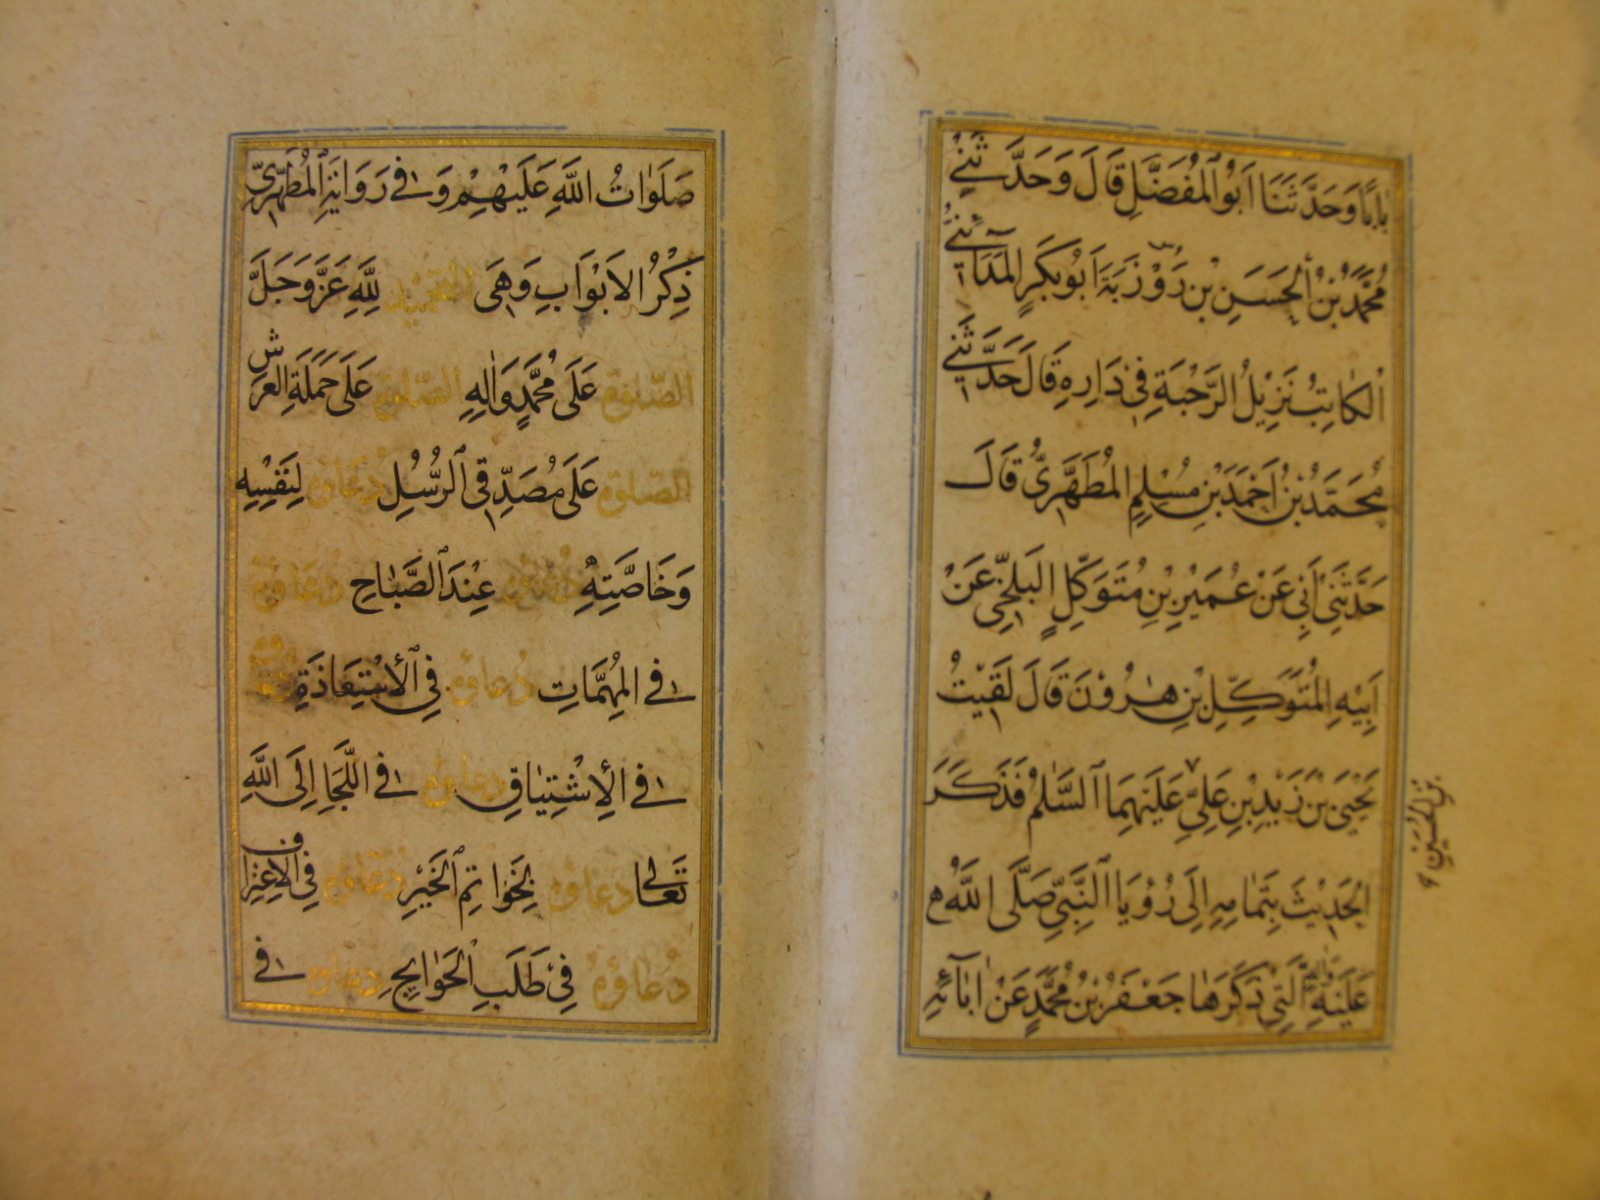 بَابًا وَحَدَّثَنَا اَبُو الْمُفَضَّلِ قَالَ وَحَدَّثَنِي
مُحَمَّدُ بْنُ الْحَسَنِ بْنِ رُوْزْبَةَ اَبُو بَكَرٍ الْمَدَآئِنِيُّ
الْكَاتِبُ نَزِيْلُ الرَّحْبَةِ فِي دَارِهِ قَالَ حَدَّثَنِي
مُحَمَّدُ بْنُ اَحْمَدَ بْنِ مُسْلِمٍ الْمُطَهَّرِيُّ قَالَ
حَدَّثَنِي اَبِي عَنْ عُمَيْرِ بْنِ مُتَوَكِّلٍ الْبَلْخِيِّ عَنْ
اَبِيْهِ الْمُتَوَكِّلِ بْنِ هٰرُوْنَ قَالَ لَقِيْتُ
يَحْيَى بْنَ زَيْدِ بْنِ عَلِيٍّ عَلَيْهِمَا السَّلٰمُ فَذَكَرَ
بن الحسين
الْحَدِيْثَ بِتَمَامِهِ اِلَى رُؤْيَا النَّبِيِّ صَلَّى اللّٰهُ
عَلَيْهِ وَاٰلِهِ الَّتِي ذَكَرَهَا جَعْفَرُ بْنُ مُحَمَّدٍ عَنْ اٰبَآئِهِ
صَلَوَاتُ اللّٰهِ عَلَيْهِمْ وَفِي رَوَايَةِ الْمُطَهَّرِيِّ
ذِكْرُ الْاَبْوَابِ وَهِيَ التحميد لِلّٰهِ عَزَّ وَجَلَّ
الصّلوة عَلَى مُحَمَّدٍ وَاٰلِهِ الصّلوة عَلَى حَمَلَةِ الْعَرْشِ
الصّلوة عَلَى مُصَدِّقِي الرُّسُلِ دعاؤه لِنَفْسِهِ
وَخَاصَّتِهِ دعاؤه عِنْدَ الصَّبَاحِ دُعاؤه
فِي الْمُهِمَّاتِ دُعاؤه فِي الْاِسْتِعَاذَةِ دعاؤه
فِي الْاِشْتِيَاقِ دعاؤه فِي اللَّجَا اِلَى اللّٰهِ
تَعَالٰى دعاؤه بِخَوَاتِمِ الْخَيْرِ دعاؤه فِي الْاِعْتِرَافِ
دُعاؤهُ فِي طَلَبِ الْحَوَائِجِ دعاؤه فِي